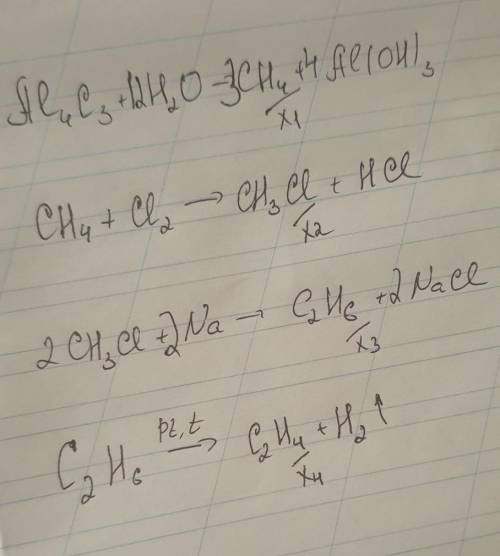 Al₄C₃ + 12H₂O → 3CH₄ + 4Al(OH)₃
x1
CH₄ + Cl₂ → CH₃Cl + HCl
x2
2CH₃Cl + 2Na → C₂H₆ + 2NaCl
x3
C₂H₆ pt, t → C₂H₄ + H₂↑
x4